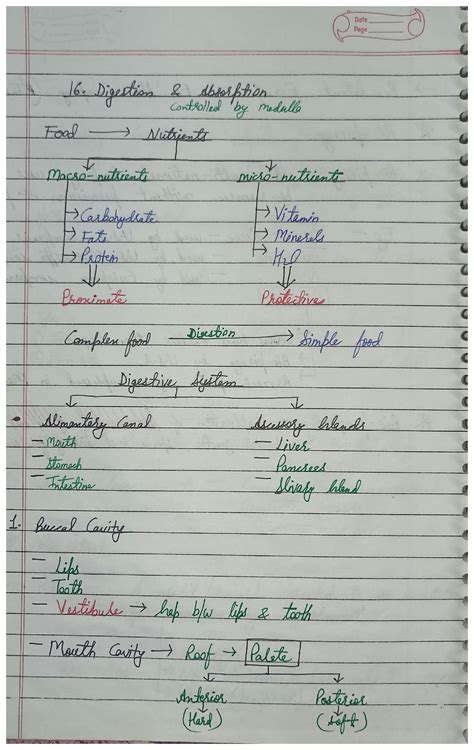 Date
Page
16. Digestion & Absorption
Controlled by medulla
Food → Nutrients
Macro-nutrients micro-nutrients
→ Carbohydrate → Vitamin
→ Fats → Minerals
→ Protein → H2O
Proximate Protective
Complex food Digestion → Simple food
Digestive System
Alimentary Canal Accessory Glands
— Mouth — Liver
— Stomach — Pancrees
— Intestine — Slivary Gland
1. Buccal Cavity
— Lips
— Tooth
— Vestibule → Gap b/w lips & tooth
— Mouth Cavity → Roof → Palete
Anterior Posterior
(Hard) (Soft)